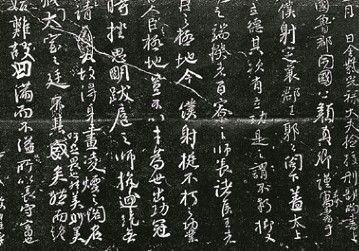 月日金紫光祿大夫檢校刑部尚
國魯郡開國公顏真卿謹寓書于
僕射定襄郡王郭公閤下蓋太上
立德其次有立功是之謂不朽抑又
之端揆者百寮之師長諸侯王者
臣之極地今僕射挺不朽之功業
人臣極地豈不以才為世出功冠
時挫思明跋扈之師抗迴紇無
請故得身畫凌煙之閣名
藏太室之廷吁足畏也然美則美矣而終
始難故曰滿而不溢所以長守富也